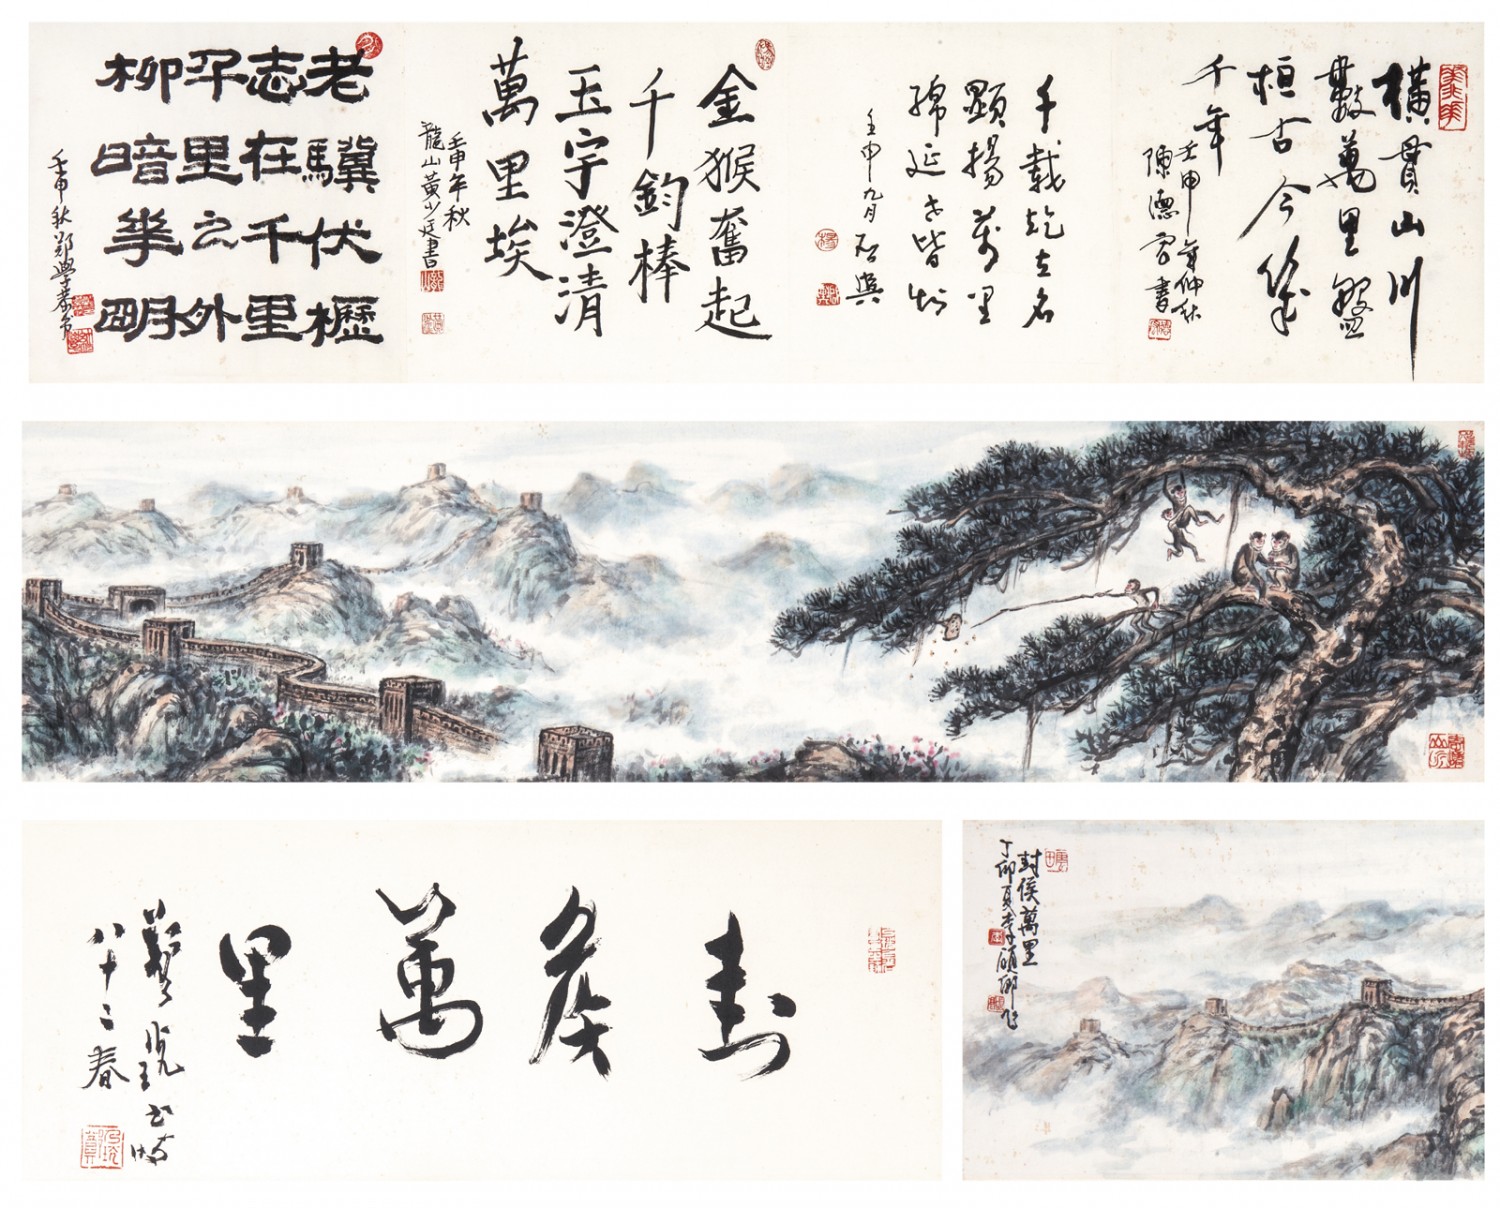 橫貫山川
數萬里盤
桓古今幾
千年
壬申年仲秋
陳德宏書
千載屹立名
顯揚萬里
綿延世皆知
壬申九月
金猴奮起
千鈞棒
玉宇澄清
萬里埃
壬申年秋
龍山黃少廷書
老驥伏櫪
志在千里
平里之外
柳暗華明
壬申秋鄭學恭書
封侯萬里
丁卯夏李碩卿作
封侯萬里
八十二春